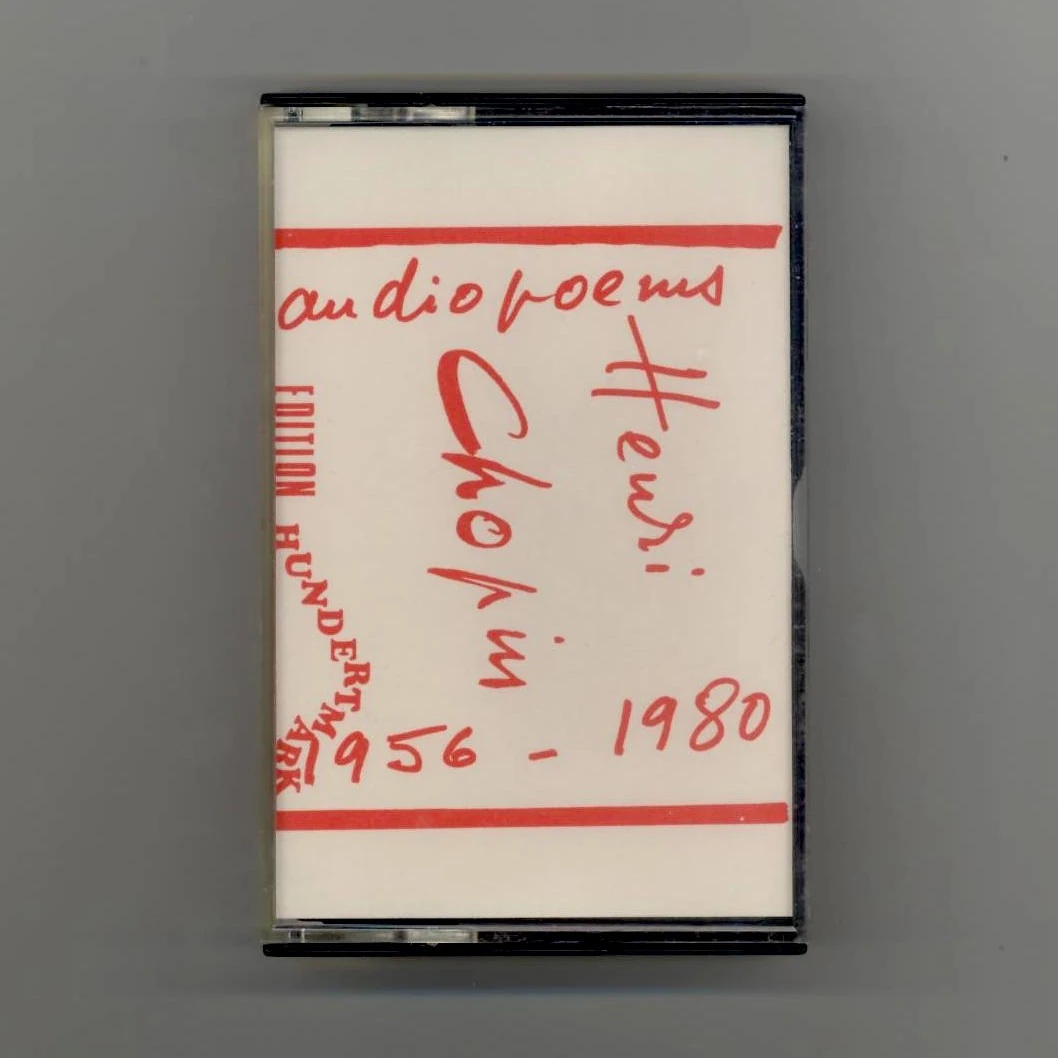 audiopoems
Henri
Chopin
EDITION HUNDERTMARK
1956 - 1980